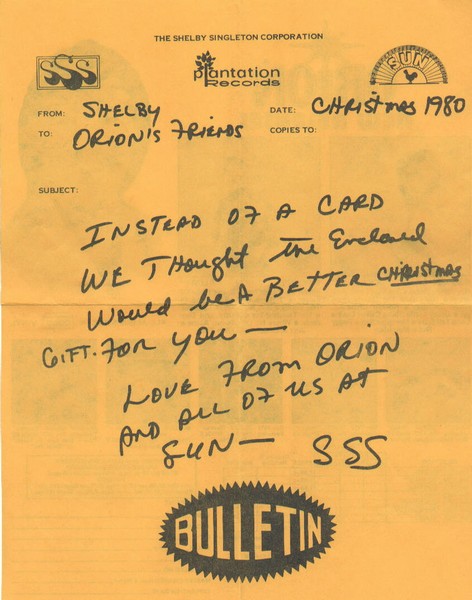 THE SHELBY SINGLETON CORPORATION
SSS
plantation
Records
SUN
FROM: SHELBY
DATE: CHRISTMAS 1980
TO: ORION'S FRIENDS
COPIES TO:
SUBJECT:
INSTEAD OF A CARD
WE THOUGHT the Enclosed
Would be A BETTER CHRISTMAS
GIFT. FOR YOU —
LOVE FROM ORION
AND ALL OF US AT
SUN — SSS
BULLETIN